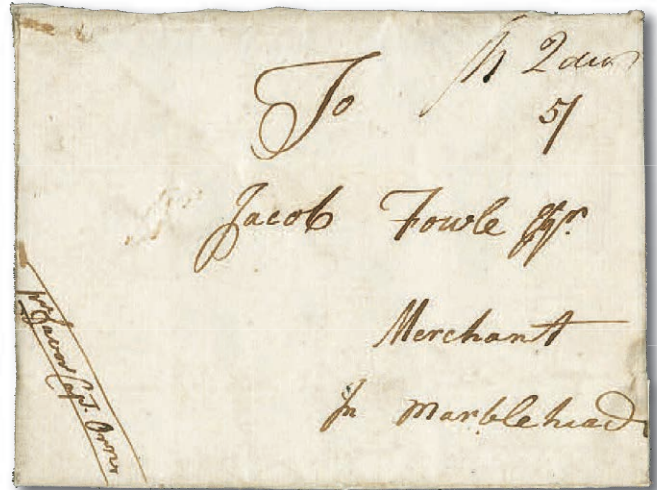 Sh 2 dw
5/
To
Jacob Fowle Esqr.
Merchant
In Marblehead
pr favor Capt. Orne